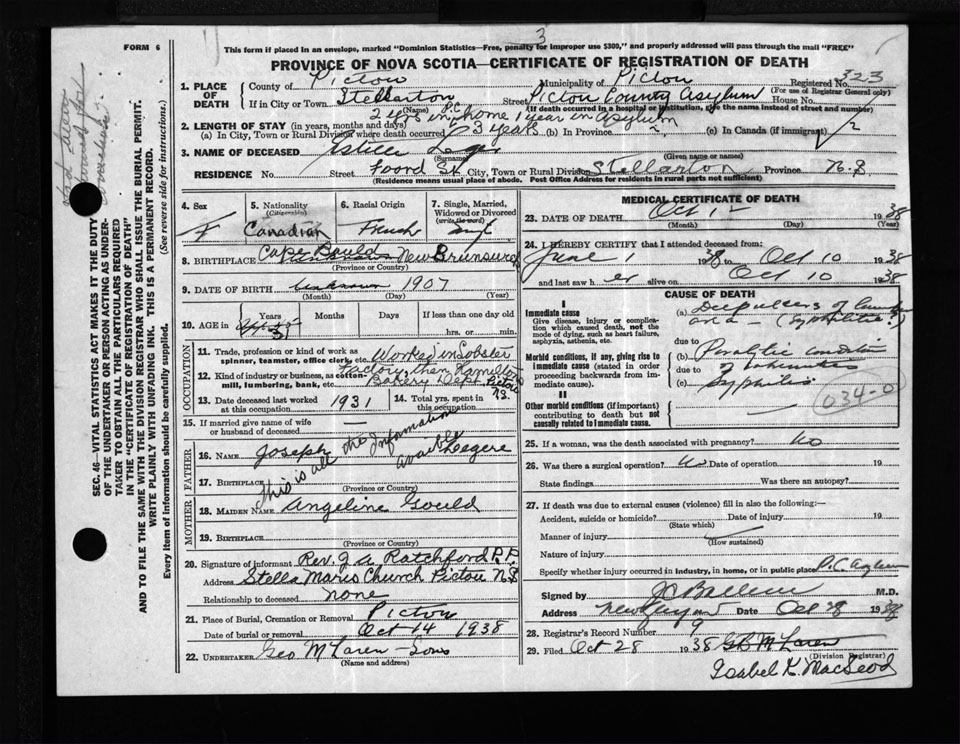 3
FORM 6
This form if placed in an envelope, marked "Dominion Statistics—Free, penalty for improper use $300," and properly addressed will pass through the mail "FREE"
PROVINCE OF NOVA SCOTIA—CERTIFICATE OF REGISTRATION OF DEATH
1. PLACE OF DEATH County of Pictou Municipality of Pictou Registered No. 323
(For use of Registrar General only)
If in City or Town Stellarton Street Pictou County Asylum House No.
(Name) (If death occurred in a hospital or institution, give the name instead of street and number)
2 yrs in P.C. home 1 year in asylum
2. LENGTH OF STAY (in years, months and days)
(a) In City, Town or Rural Division where death occurred 3 years (b) In Province (c) In Canada (if immigrant)
3. NAME OF DECEASED
(Surname) (Given name or names)
RESIDENCE No. Street Foord St City, Town or Rural Division Stellarton Province N.S.
(Residence means usual place of abode. Post Office Address for residents in rural parts not sufficient)
4. Sex F
5. Nationality (Citizenship) Canadian
6. Racial Origin French
7. Single, Married, Widowed or Divorced (write the word)
8. BIRTHPLACE Cape Bauld New Brunswick
(Province or Country)
9. DATE OF BIRTH Unknown 1907
(Month) (Day) (Year)
10. AGE in Years Months Days If less than one day old
hrs. or min.
OCCUPATION
11. Trade, profession or kind of work as spinner, teamster, office clerk, etc. Worked in Lobster
12. Kind of industry or business, as cotton-mill, lumbering, bank, etc. Factory then Hamiltons Bakery Dept. Pictou N.S.
13. Date deceased last worked at this occupation 1931
14. Total yrs. spent in this occupation
15. If married give name of wife or husband of deceased —
This is all the Information
FATHER
16. NAME Joseph Legere
17. BIRTHPLACE
(Province or Country)
MOTHER
18. MAIDEN NAME Angeline Gould
19. BIRTHPLACE
(Province or Country)
20. Signature of informant Rev. Ratchford P.P.
Address Stella Maris Church Pictou N.S.
Relationship to deceased none
21. Place of Burial, Cremation or Removal Pictou
Date of burial or removal Oct 14 1938
22. UNDERTAKER Geo McLaren Sons
(Name and address)
MEDICAL CERTIFICATE OF DEATH
23. DATE OF DEATH Oct 1938
(Month) (Day) (Year)
24. I HEREBY CERTIFY that I attended deceased from:
June 1 1938 to Oct 10 1938
and last saw her alive on Oct 10 1938
CAUSE OF DEATH
I
Immediate cause
Give disease, injury or complication which caused death, not the mode of dying, such as heart failure, asphyxia, asthenia, etc.
(a) Deep ulcers of
area — (Syphilitic?)
due to
Morbid conditions, if any, giving rise to immediate cause (stated in order proceeding backwards from immediate cause).
(b) Paralytic condition
due to
(c) Syphilis
034-0
II
Other morbid conditions (if important) contributing to death but not causally related to I immediate cause.
25. If a woman, was the death associated with pregnancy? No
26. Was there a surgical operation? Date of operation 19
State findings Was there an autopsy?
27. If death was due to external causes (violence) fill in also the following:—
Accident, suicide or homicide? Date of injury 19
(State which)
Manner of injury
(How sustained)
Nature of injury
Specify whether injury occurred in industry, in home, or in public place P.C. Asylum
Signed by M.D.
Address New Glasgow Date Oct 28 1938
28. Registrar's Record Number 9
29. Filed Oct 28 1938 McLaren
(Division Registrar)
Isabel K. MacLeod
SEC. 46—VITAL STATISTICS ACT MAKES IT THE DUTY
OF THE UNDERTAKER OR PERSON ACTING AS UNDER-
TAKER TO OBTAIN ALL THE PARTICULARS REQUIRED
IN THE "CERTIFICATE OF REGISTRATION OF DEATH"
AND TO FILE THE SAME WITH THE DIVISION REGISTRAR WHO SHALL ISSUE THE BURIAL PERMIT.
WRITE PLAINLY WITH UNFADING INK. THIS IS A PERMANENT RECORD.
Every item of information should be carefully supplied. (See reverse side for instructions.)